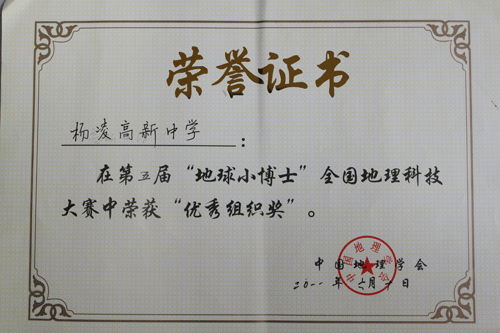 荣誉证书
杨凌高新中学：
在第五届“地球小博士”全国地理科技
大赛中荣获“优秀组织奖”。
中国地理学会
二〇一一年六月 日